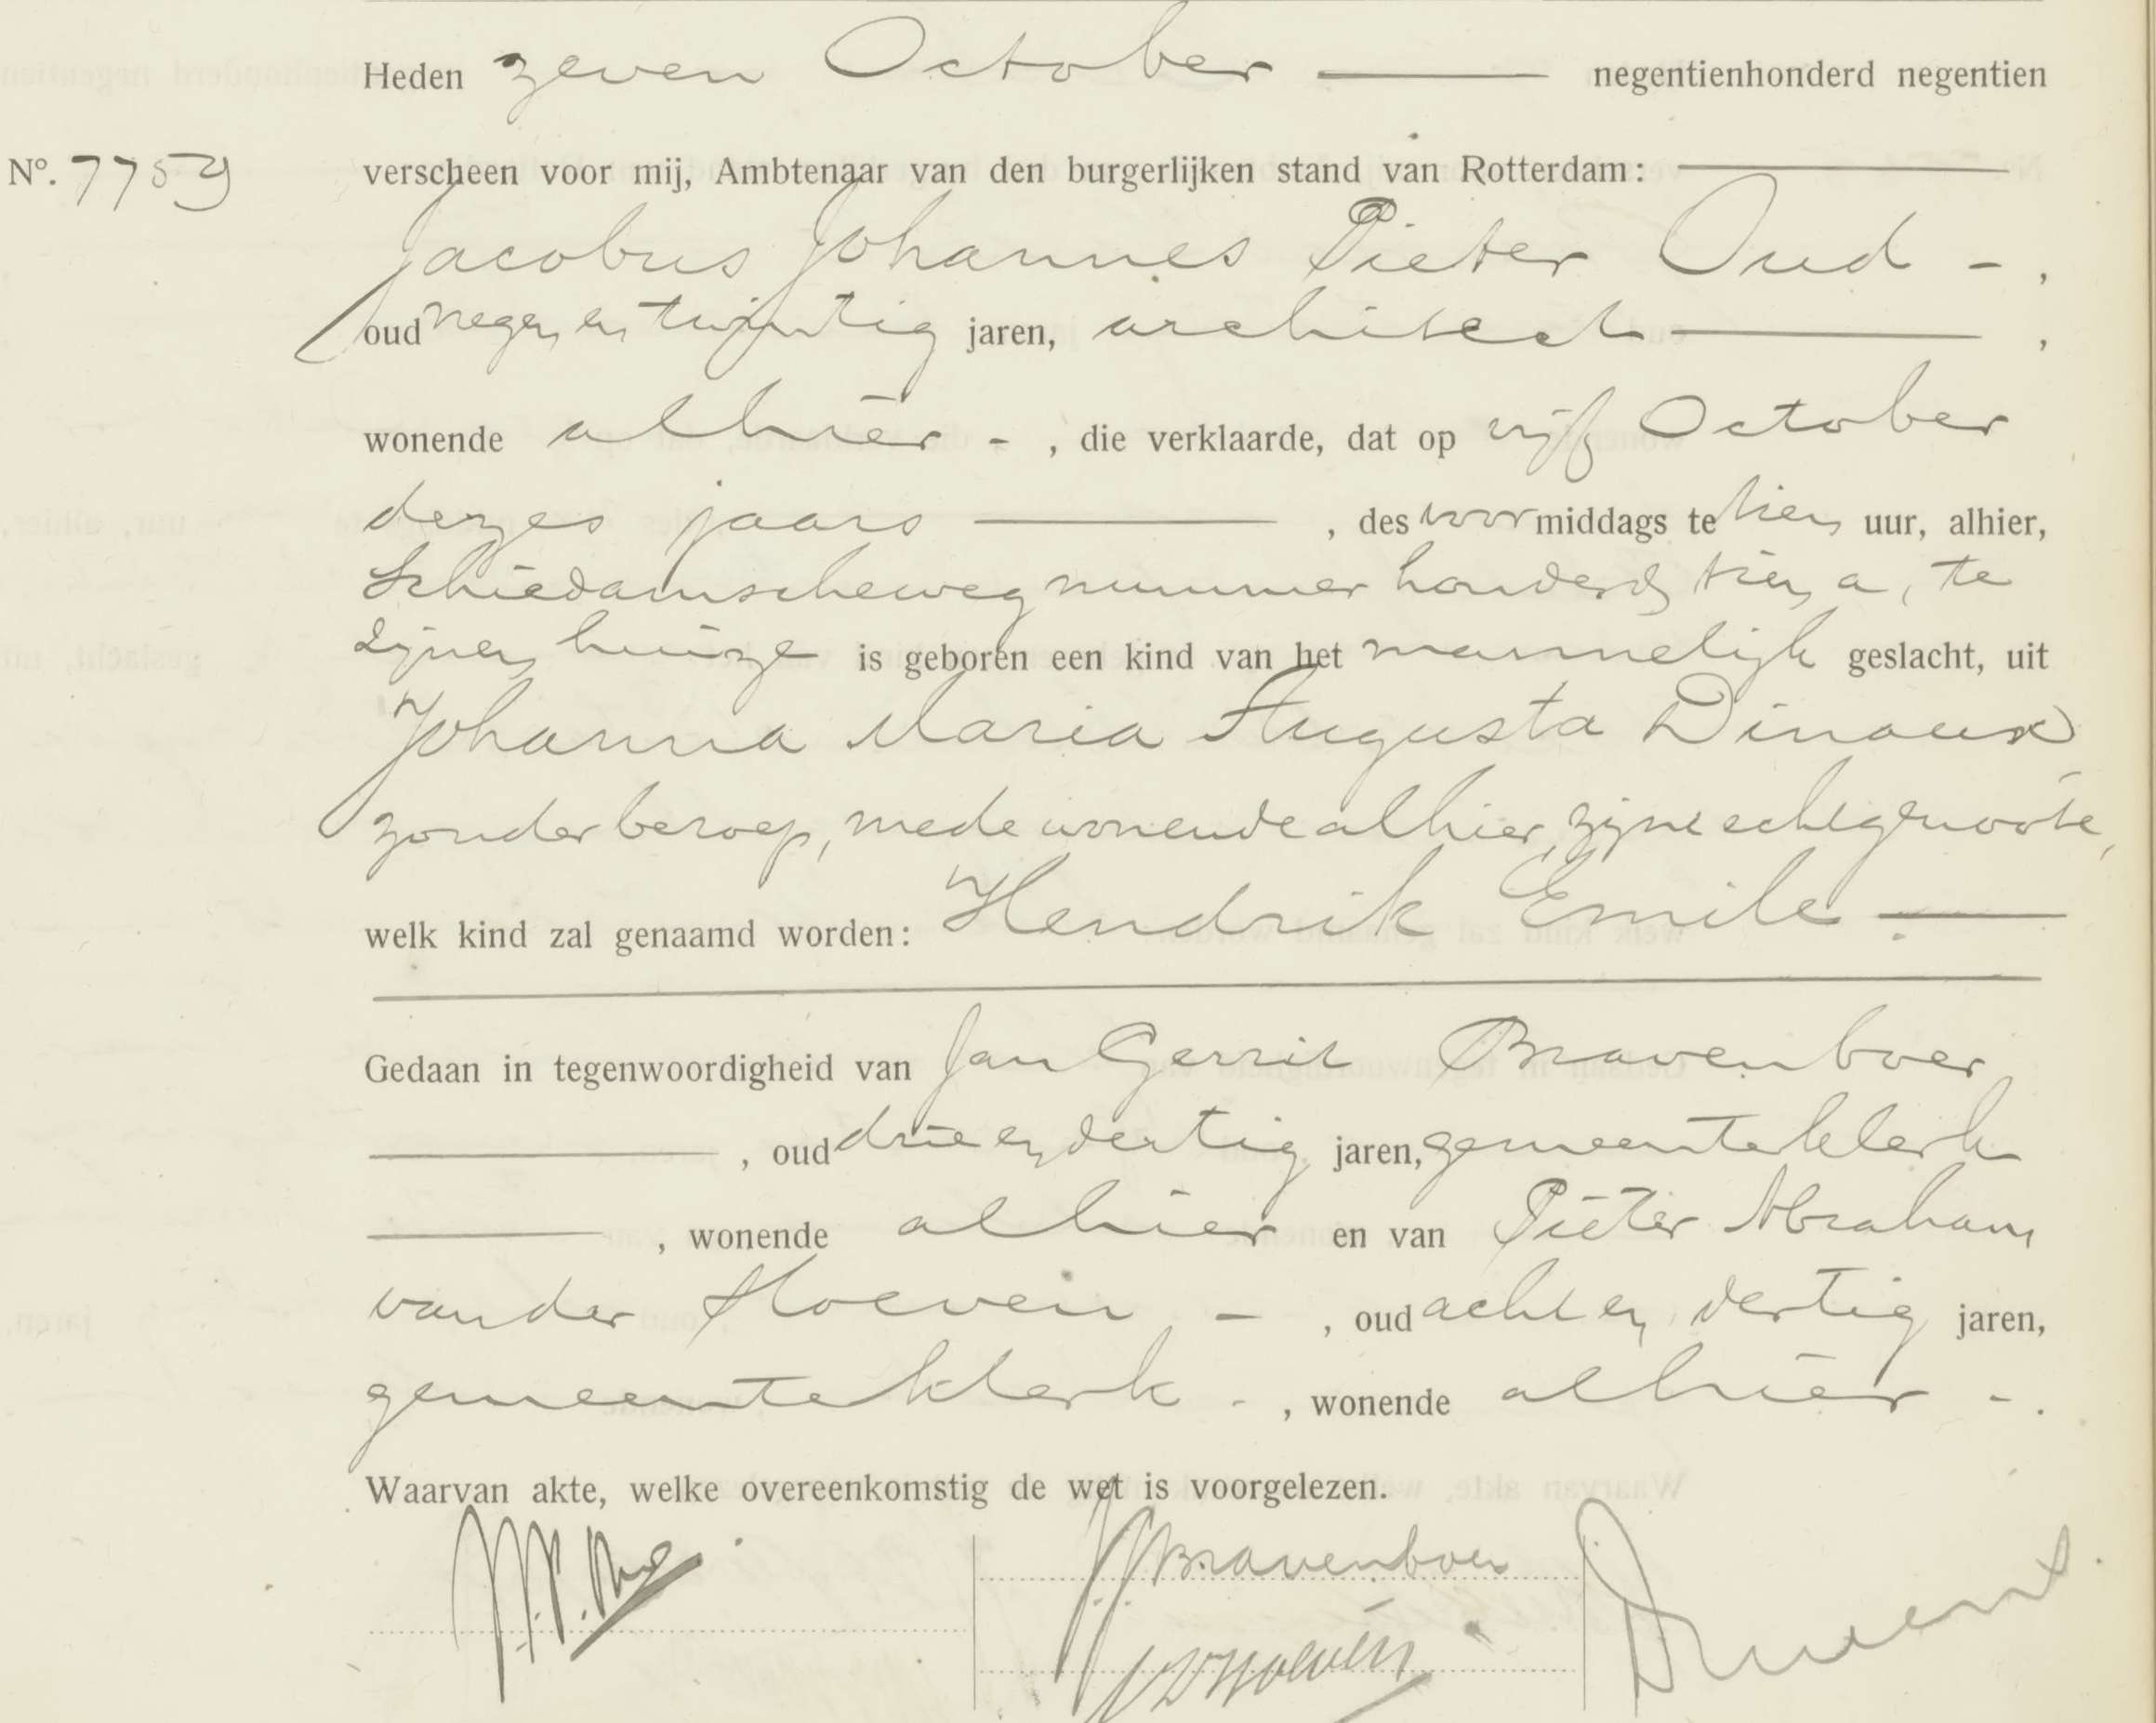 Heden zeven October negentienhonderd negentien
Nº. 7759 verscheen voor mij, Ambtenaar van den burgerlijken stand van Rotterdam:
Jacobus Johannes Pieter Oud - ,
oud negen en twintig jaren, architect ,
wonende alhier - , die verklaarde, dat op vijf October
dezes jaars , des voormiddags te tien uur, alhier,
Schiedamscheweg nummer honderd tien a, te
zijnen huize is geboren een kind van het mannelijk geslacht, uit
Johanna Maria Augusta Dinaux
zonder beroep, mede wonende alhier, zijne echtgenoote,
welk kind zal genaamd worden: Hendrik Emile
Gedaan in tegenwoordigheid van Jan Gerrit Bravenboer
, oud drie en dertig jaren, gemeenteklerk
, wonende alhier en van Pieter Abraham
van der Hoeven - , oud acht en dertig jaren,
gemeenteklerk - , wonende alhier - .
Waarvan akte, welke overeenkomstig de wet is voorgelezen.
J.J.P. Oud
J.G. Bravenboer
PAvdHoeven